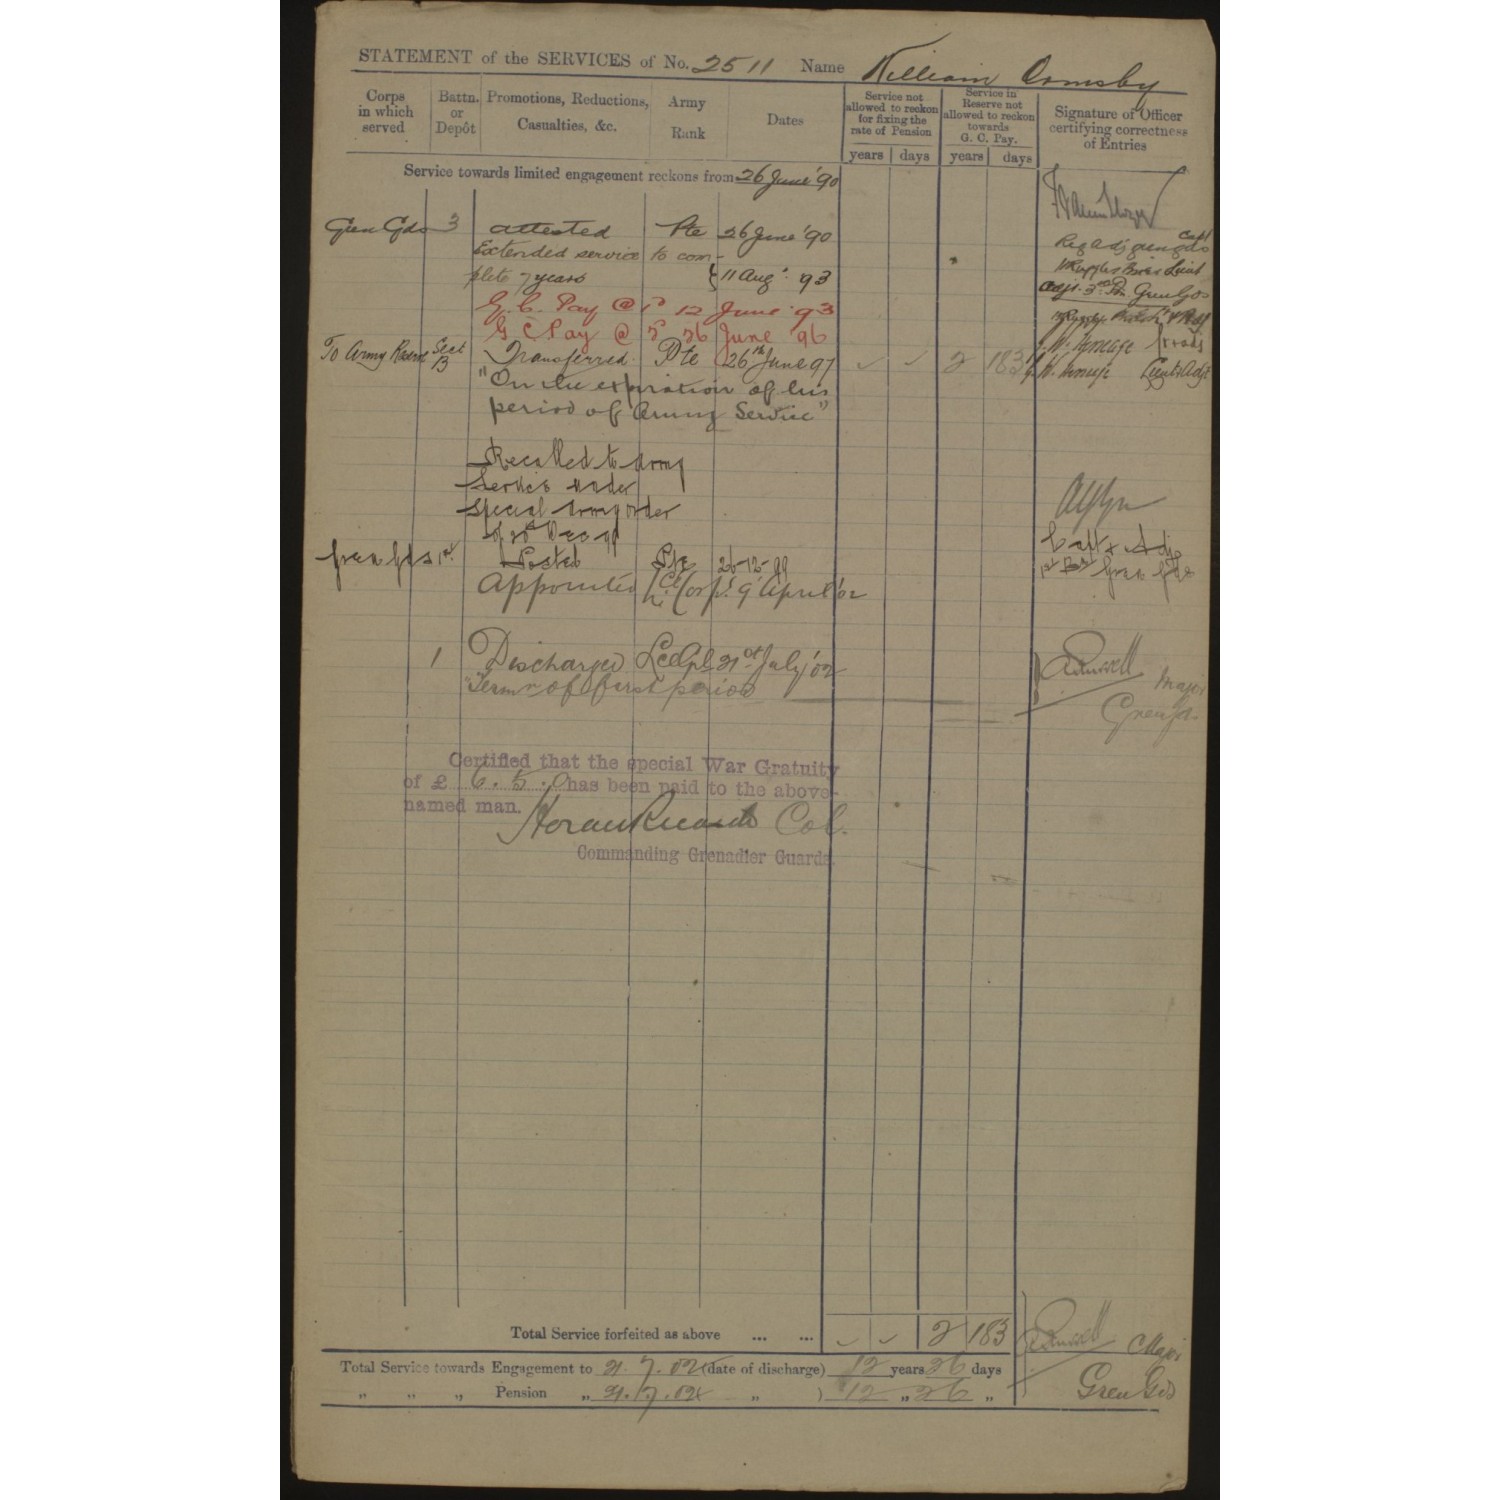 STATEMENT of the SERVICES of No. 2511 Name William Ormsby
Corps in which served
Battn. or Depôt
Promotions, Reductions, Casualties, &c.
Army Rank
Dates
Service not allowed to reckon for fixing the rate of Pension
Service in Reserve not allowed to reckon towards G. C. Pay.
Signature of Officer certifying correctness of Entries
years days years days
Service towards limited engagement reckons from 26 June '90
Gren Gds 3 attested Pte 26 June '90
Capt
Reg Adj Gren Gds
Extended service to com-
plete 7 years } 11 Aug. 93
Lieut
Adjt. 3rd Bn. Gren Gds
G. C. Pay @ 1d 12 June '93
G C Pay @ 26 June '96
To Army Reserve Sect B Transferred Pte 26th June 97 2 183
Lieut & Adjt
"On the expiration of his
period of Army Service"
Recalled to Army
Service under
Special Army Order
of 20th Dec 99
Gren Gds 1st Posted Pte 26-12-99
Capt & Adj
1st Bn Gren Gds
Appointed Lce Corpl. 9 April '02
1 Discharged Lce Cpl 21st July '02
Major
Gren Gds
"Termn of first period
Certified that the special War Gratuity
of £ 6. 5. 0 has been paid to the above-
named man.
Horace Ricardo Col.
Commanding Grenadier Guards.
Total Service forfeited as above ... ... 2 183
Total Service towards Engagement to 21.7.02 (date of discharge) 12 years 26 days
Major
Gren Gds
„ „ „ Pension „ 21.7.02 „ ) 12 „ 26 „